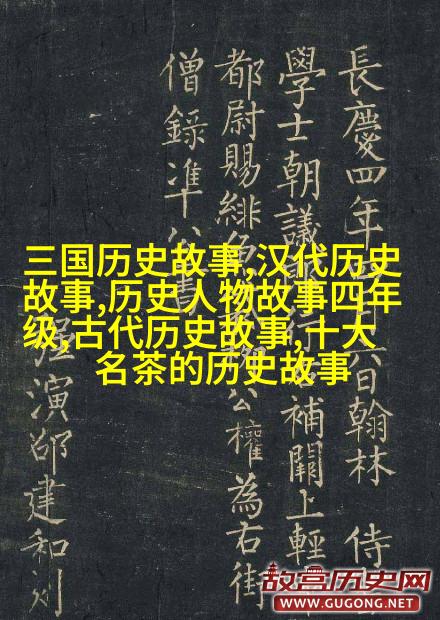 三国历史故事,汉代历史
故事,历史人物故事四年
级,古代历史故事,十大
名茶的历史故事
長慶四年六日翰林 侍
學士朝議補闕上輕
都尉賜緋公權為右街
僧錄準公書
演邵建和刻
故宫历史网
WWW.GUGONG.NET